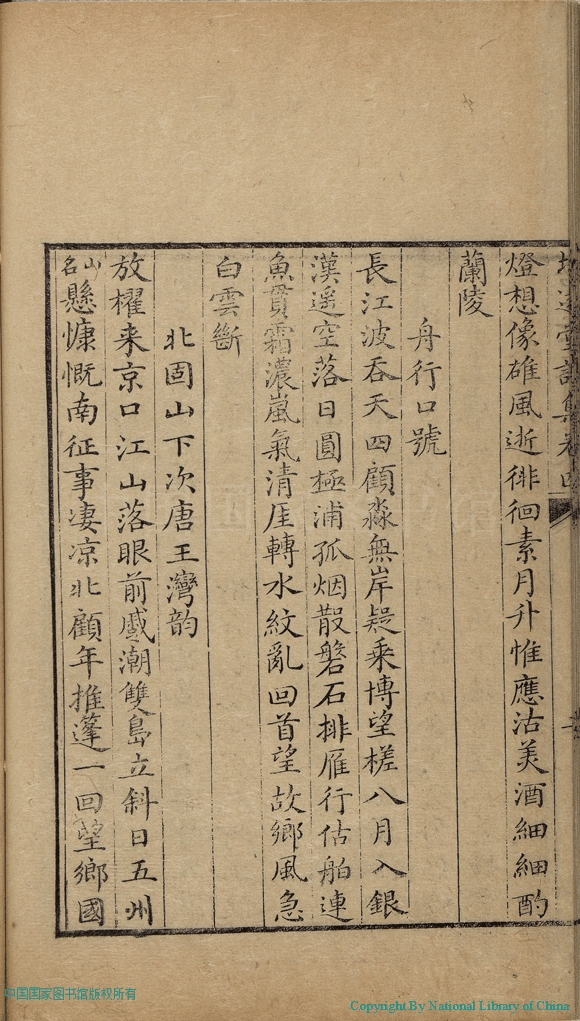 培遠堂詩集卷四
燈想像雄風逝徘徊素月升惟應沽美酒細細酌
蘭陵
舟行口號
長江波吞天四顧淼無岸疑乘博望槎八月入銀
漢遥空落日圓極浦孤烟散磐石排雁行估舶連
魚貫霜濃嵐氣清厓轉水紋亂回首望故鄉風急
白雲斷
北固山下次唐王灣韵
放櫂来京口江山落眼前蹙潮雙島立斜日五州
山名懸慷慨南征事凄凉北顧年推篷一回望鄉國
中国国家图书馆版权所有
Copyright By National Library of China